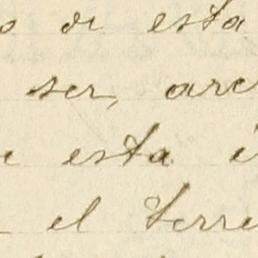 o de esta
ser, are
e esta é
el terre